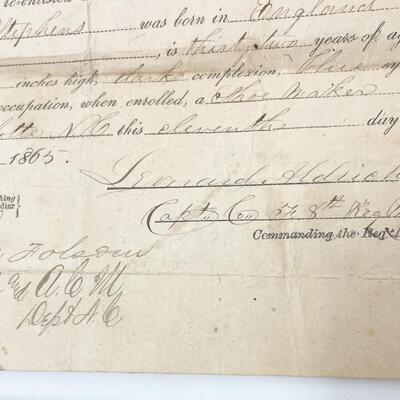 re-enlisted
Stephens was born in England
, is thirty two years of ag
inches high, dark complexion, blue ey
occupation, when enrolled, a Shoe Maker
N.C this eleventh day
1865.
Leonard Aldrich
Capt Co F 8th Reg
Commanding the Reg't
Folsom
A.C.M
Dept N.C